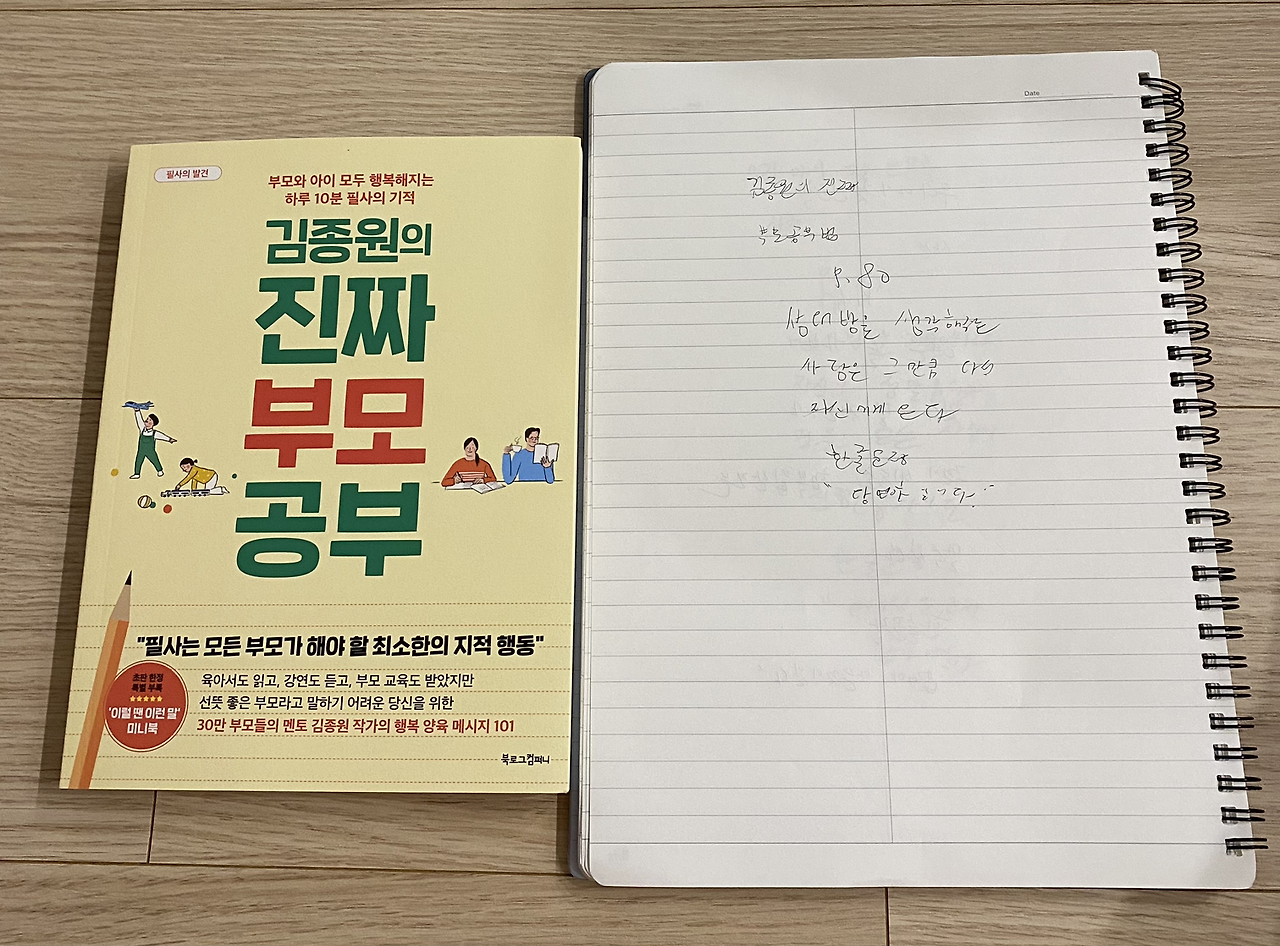 필사의 발견
부모와 아이 모두 행복해지는
하루 10분 필사의 기적
김종원의
진짜
부모
공부
"필사는 모든 부모가 해야 할 최소한의 지적 행동"
육아서도 읽고, 강연도 듣고, 부모 교육도 받았지만
선뜻 좋은 부모라고 말하기 어려운 당신을 위한
30만 부모들의 멘토 김종원 작가의 행복 양육 메시지 101
초판 한정
특별 부록
★★★★★
'이럴 땐 이런 말'
미니북
북로그컴퍼니
Date
김종원의 진짜
부모공부법
P. 80
상대방을 생각하는
사람은 그 만큼 다시
자신에게 온다
한글문장